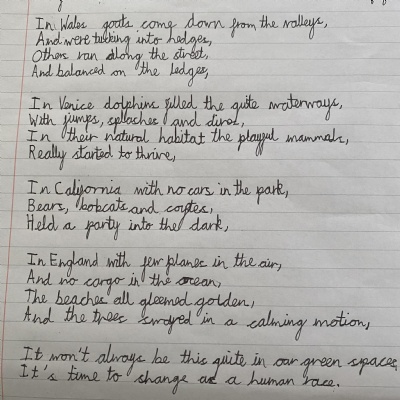 In Wales goats come down from the valleys,
And were tucking into hedges,
Others ran along the street,
And balanced on the ledges,
In Venice dolphins filled the quite waterways,
With jumps, splashes and dives,
In their natural habitat the playful mammals,
Really started to thrive,
In California with no cars in the park,
Bears, bobcats and coytes,
Held a party into the dark,
In England with few planes in the air,
And no cargo in the ocean,
The beaches all gleemed golden,
And the trees swayed in a calming motion,
It won't always be this quite in our green spaces,
It's time to change as a human race.